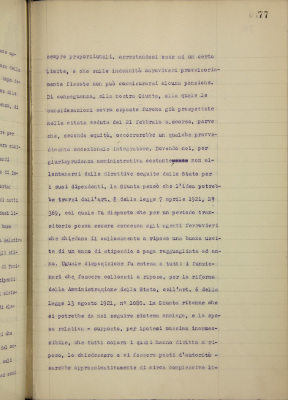 77
sempre proporzionali, arrestandosi anzi ad un certo
limite, e che sulle indennità caroviveri provvisoria-
mente fissate non può considerarsi alcuna pensione.
Di conseguenza, alla nostra Giunta, alla quale le
considerazioni sovra esposte furono già prospettate
nella seduta del 21 febbraio scorso, parve
che, secondo equità, occorrerebbe un qualche provve-
dimento eccezionale integrativo. Dovendo noi, per
giurisprudenza amministrativa costante non al-
lontanarci dalle direttive seguite dallo Stato per
i suoi dipendenti, la Giunta pensò che l'idea potreb-
be trarsi dall'art. 8 della legge 7 aprile 1921, Nº
369, col quale fu disposto che per un periodo transi-
torio possa essere concessa agli agenti ferroviari
che chiedano il collocamento a riposo una buona usci-
ta di un anno di stipendio o paga ragguagliata ad an-
no. Uguale disposizione fu estesa a tutti i funzio-
nari che fossero collocati a riposo, per la riforma
della Amministrazione dello Stato, coll'art. 6 della
legge 13 agosto 1921, nº 1080. La Giunta ritenne che
si potrebbe da noi seguire sistema analogo, e la spe-
sa relativa - supposto, per ipotesi massima inammes-
sibile, che tutti coloro i quali hanno diritto a ri-
poso, lo chiedessero o vi fossero posti d'autorità -
sarebbe approssimativamente di circa complessive li-